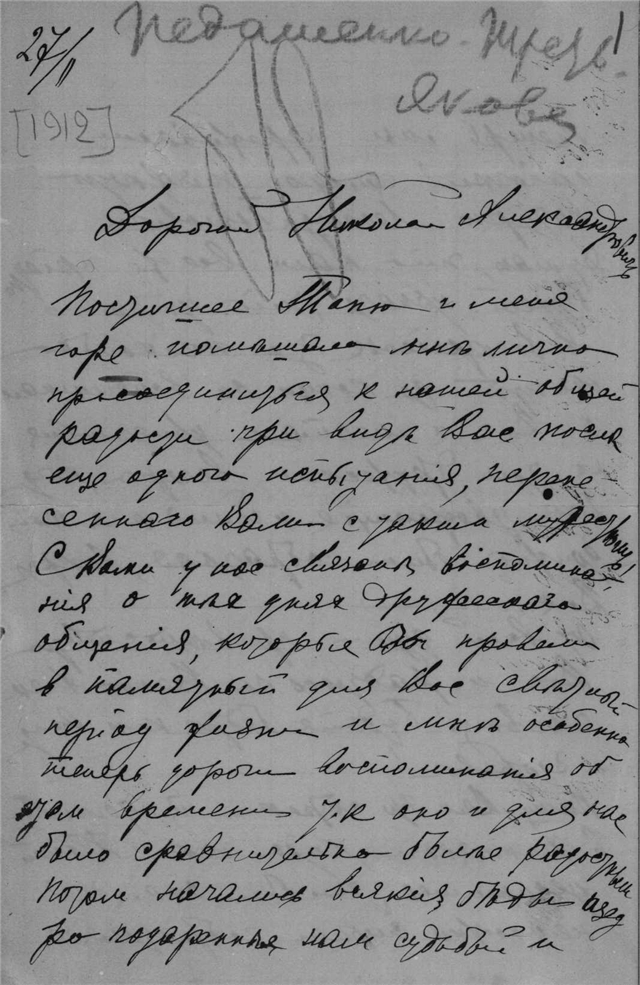 27/II
Недашенко-Трезв.
1
Яковен
[1912]
Дорогой Николай Александрович
Постигшее Таню и меня
горе помѣшало мнѣ лично
присоединиться к нашей общей
радости при видѣ Вас послѣ
еще одного испытания, перене-
сеннаго Вами с таким мужеством!
С Вами у нас связаны воспомина-
ния о тѣх днях дружескаго
общения, которые Вы провели
в памятный для Вас
период жизни и мнѣ особенно
теперь дороги воспоминания об
этом времени т.к оно и для нас
было сравнительно болѣе радостным
Потом начались всякия бѣды щед
ро подаренныя нам судьбой и